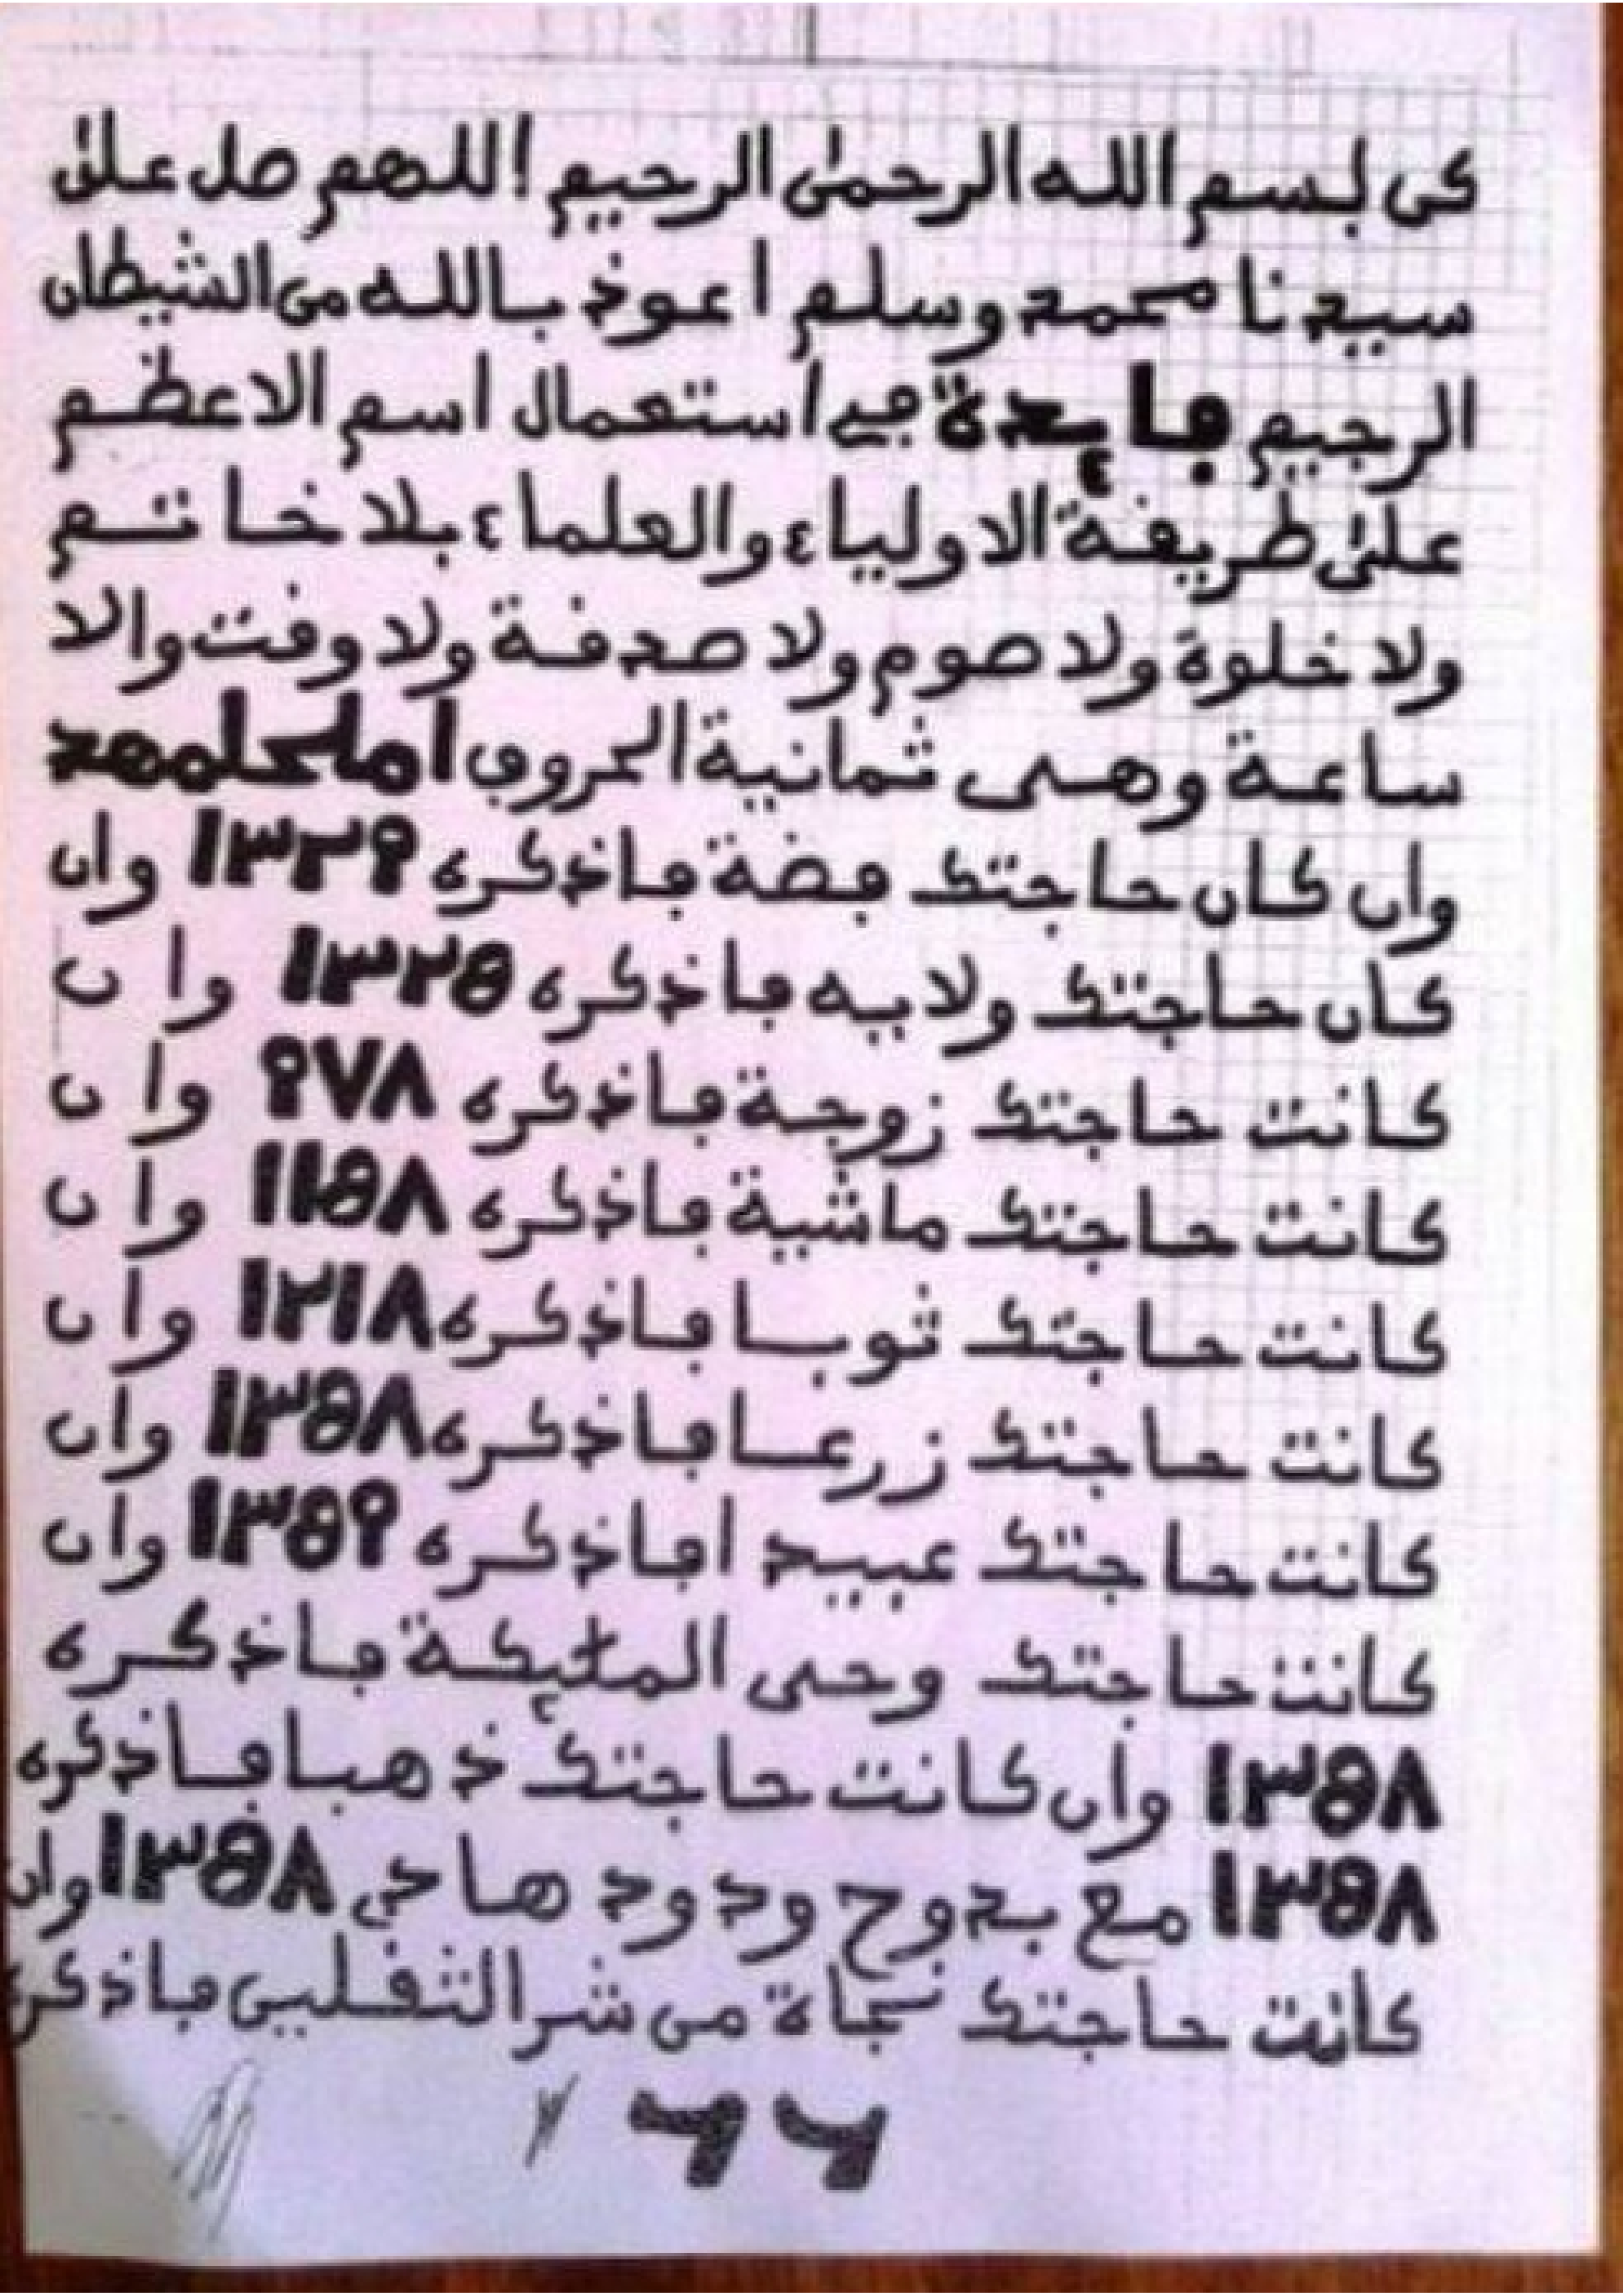 كى بسم الله الرحمٰن الرحيم اللهم صل علىٰ
سيدنا محمد وسلم اعوذ بالله من الشيطان
الرجيم ڢايدة ڢي استعمال اسم الاعظم
علىٰ طريفة الاولياء والعلماء بلا خاتم
ولا خلوة ولا صوم ولا صدفة ولا وفت والا
ساعة وهى ثمانية الحروڢ
وان كان حاجتك ڢضة ڢاذكره ١٣٢٩ وان
كان حاجتك ولايه ڢاذكره ١٣٢٥ وا ن
كانت حاجتك زوجة ڢاذكره ٩٧٨ وا ن
كانت حاجتك ماشية ڢاذكره ١١٥٨ وا ن
كانت حاجتك توبا ڢاذكره ١٢١٨ وا ن
كانت حاجتك زرعا ڢاذكره ١٣٥٨ وان
كانت حاجتك عبيد اڢاذكره ١٣٥٩ وان
كانت حاجتك وحى المليكة ڢاذكره
١٣٥٨ وان كانت حاجتك ذهبا ڢاذكره
١٣٥٨ مع بدوح ودود هادي ١٣٥٨ وان
كانت حاجتك نجاة من شر الثفلين ڢاذكره
٦٦